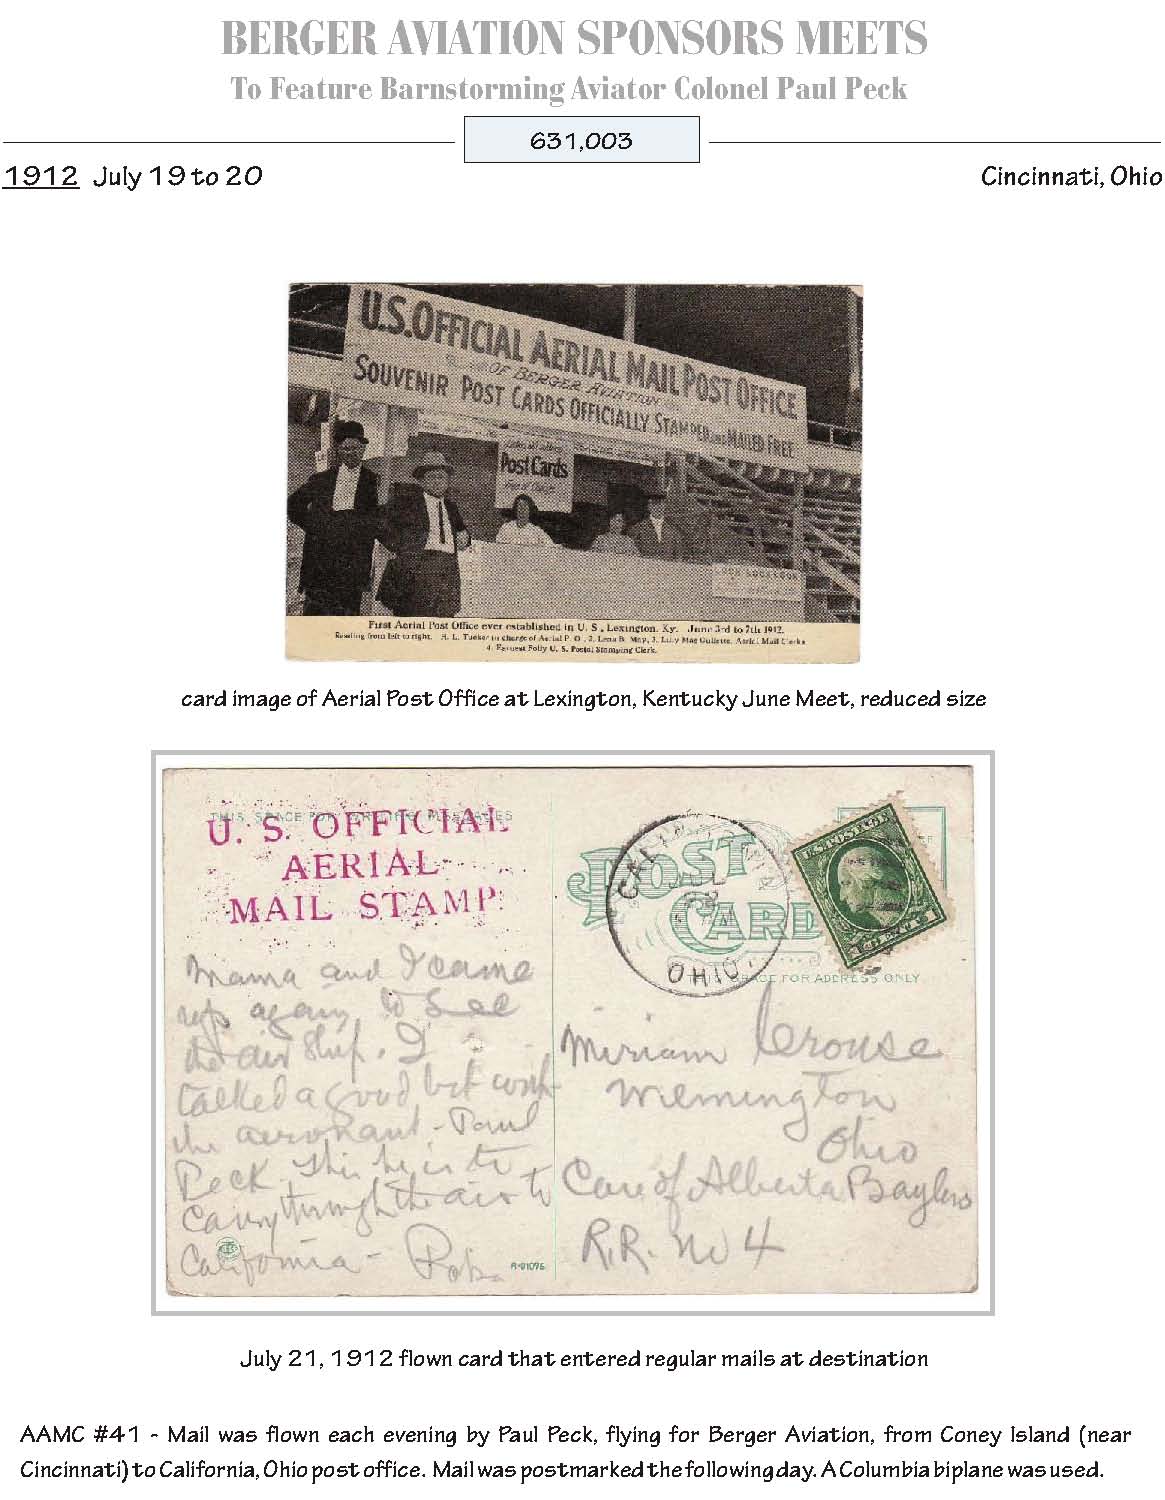 BERGER AVIATION SPONSORS MEETS
To Feature Barnstorming Aviator Colonel Paul Peck
631,003
1912 July 19 to 20
Cincinnati, Ohio
U.S. OFFICIAL AERIAL MAIL POST OFFICE
OF BERGER AVIATION
SOUVENIR POST CARDS OFFICIALLY STAMPED AND MAILED FREE
Post Cards
First Aerial Post Office ever established in U. S., Lexington, Ky. June 3rd to 7th 1912.
Reading from left to right. H. L. Tucker in charge of Aerial P. O., 2. Lena B. May, 3. Lilly Mae Gullette, Aerial Mail Clerks
4. Earnest Polly U. S. Postal Stamping Clerk.
card image of Aerial Post Office at Lexington, Kentucky June Meet, reduced size
THIS SPACE FOR WRITING MESSAGES
U. S. OFFICIAL
AERIAL
MAIL STAMP.
POST
CARD
OHIO.
U.S. POSTAGE
THIS SPACE FOR ADDRESS ONLY
Mama and I came
up again to see
the air ship. I
talked a good bit with
the aeronaut, Paul
Peck. This he is to
carry through the air to
California -
A-91076
Miriam Crouse
Wilmington
Ohio
Care of Alberta
R.R. No 4
July 21, 1912 flown card that entered regular mails at destination
AAMC #41 - Mail was flown each evening by Paul Peck, flying for Berger Aviation, from Coney Island (near
Cincinnati) to California, Ohio post office. Mail was postmarked the following day. A Columbia biplane was used.